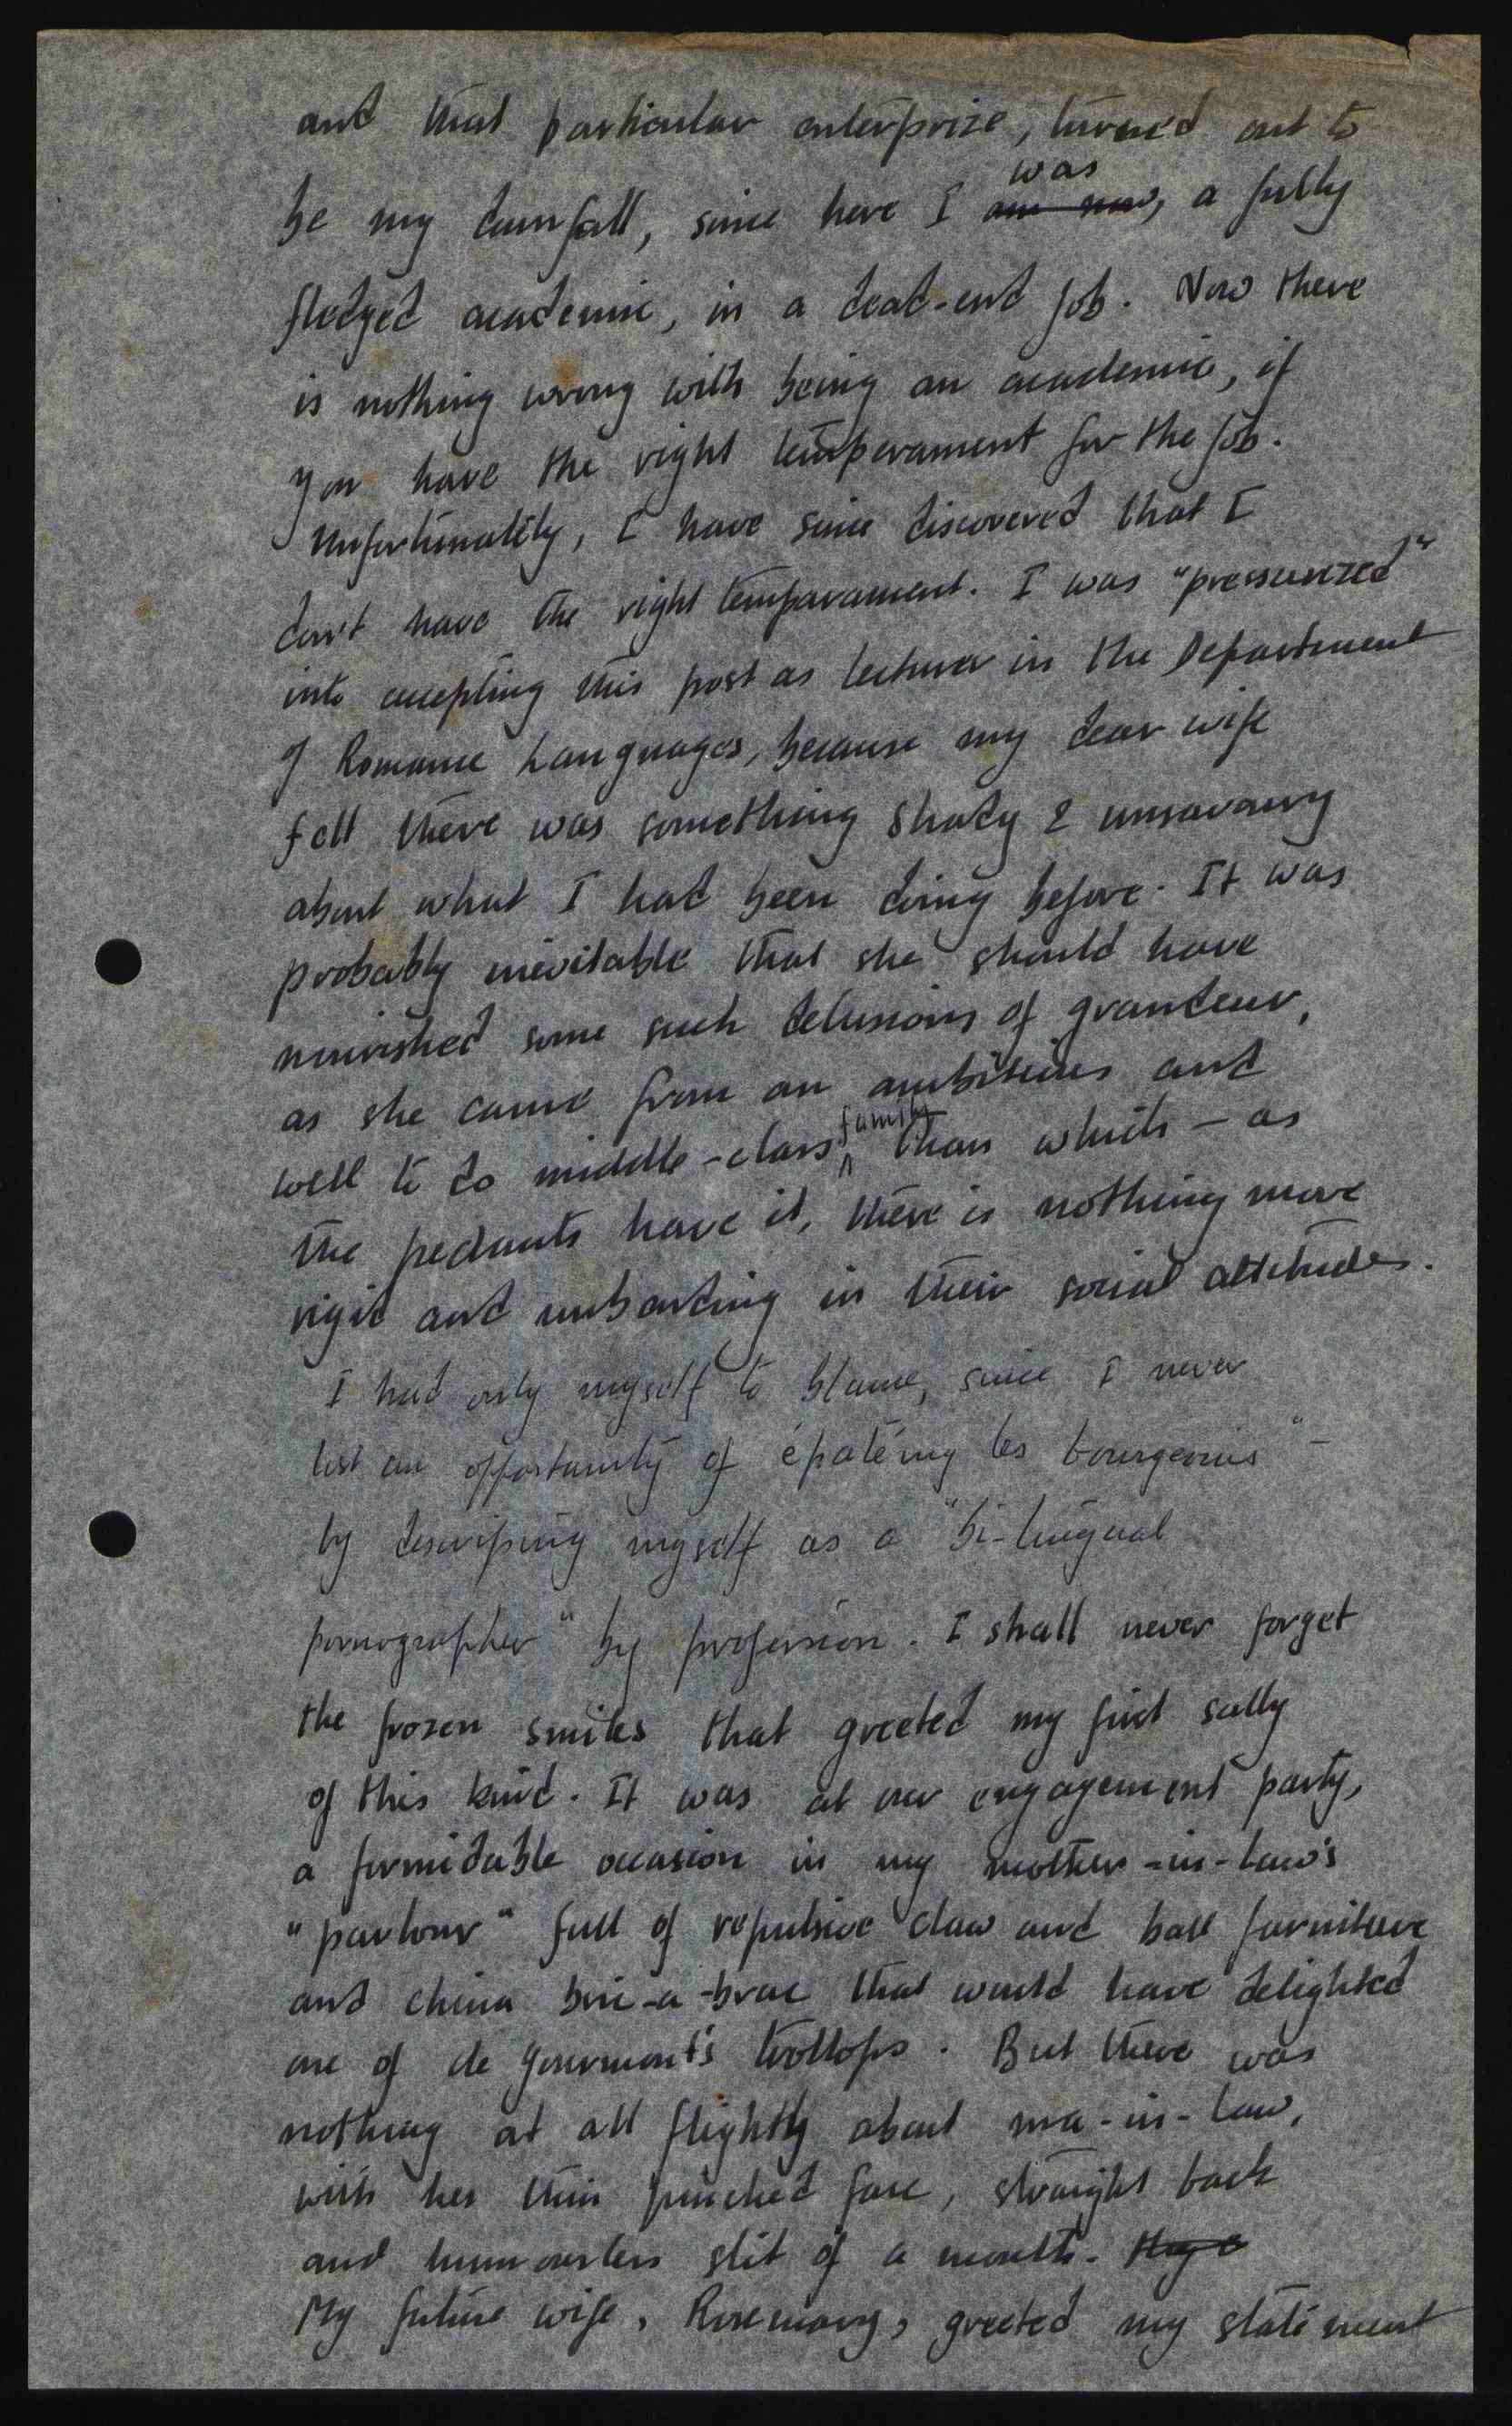 and that particular enterprize, turned out to
be my downfall, since here I was ~~am now~~, a fully
fledged academic, in a dead-end job. Now there
is nothing wrong with being an academic, if
you have the right temperament for the job.
Unfortunately, I have since discovered that I
don't have the right temparament. I was "pressurized"
into accepting this post as lecturer in the Department
of Romance Languages, because my dear wife
felt there was something shady & unsavoury
about what I had been doing before. It was
probably inevitable that she should have
nourished some such delusions of grandeur,
as she came from an ambitious and
well to do middle-class family than which – as
the pedants have it, there is nothing more
rigid and unbending in their social attitudes.
I had only myself to blame, since I never
lost an opportunity of épatéing les bourgeouis" –
by descriping myself as a "bi-lingual
pornographer" by profession. I shall never forget
the frozen smiles that greeted my first sally
of this kind. It was at our engagement party,
a formidable occasion in my mother-in-law's
"parlour" full of repulsive claw and ball furniture
and china bric-a-brac that would have delighted
one of de Gourmont's trollops. But there was
nothing at all flighty about ma-in-law,
with her thin pinched face, straight back
and humourless slit of a mouth.
My future wife, Rosemary, greeted my statement